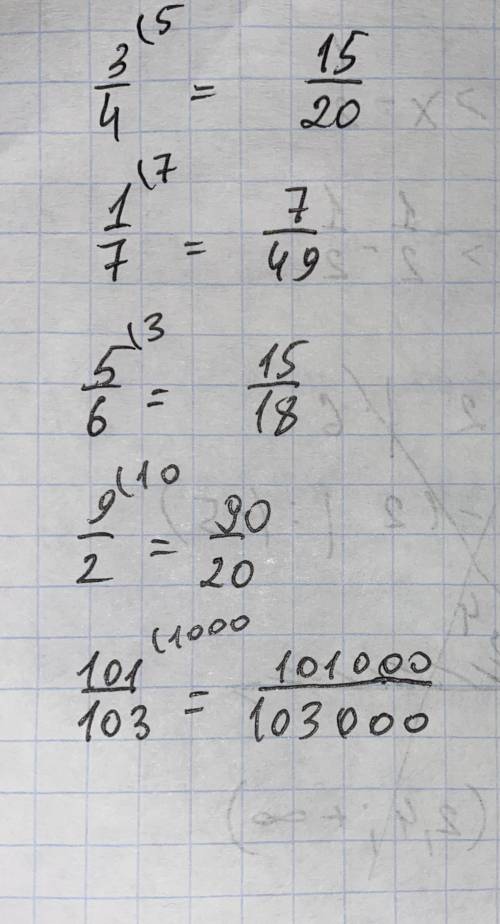 3/4 (5 = 15/20
1/7 (7 = 7/49
5/6 (3 = 15/18
9/2 (10 = 90/20
101/103 (1000 = 101000/103000